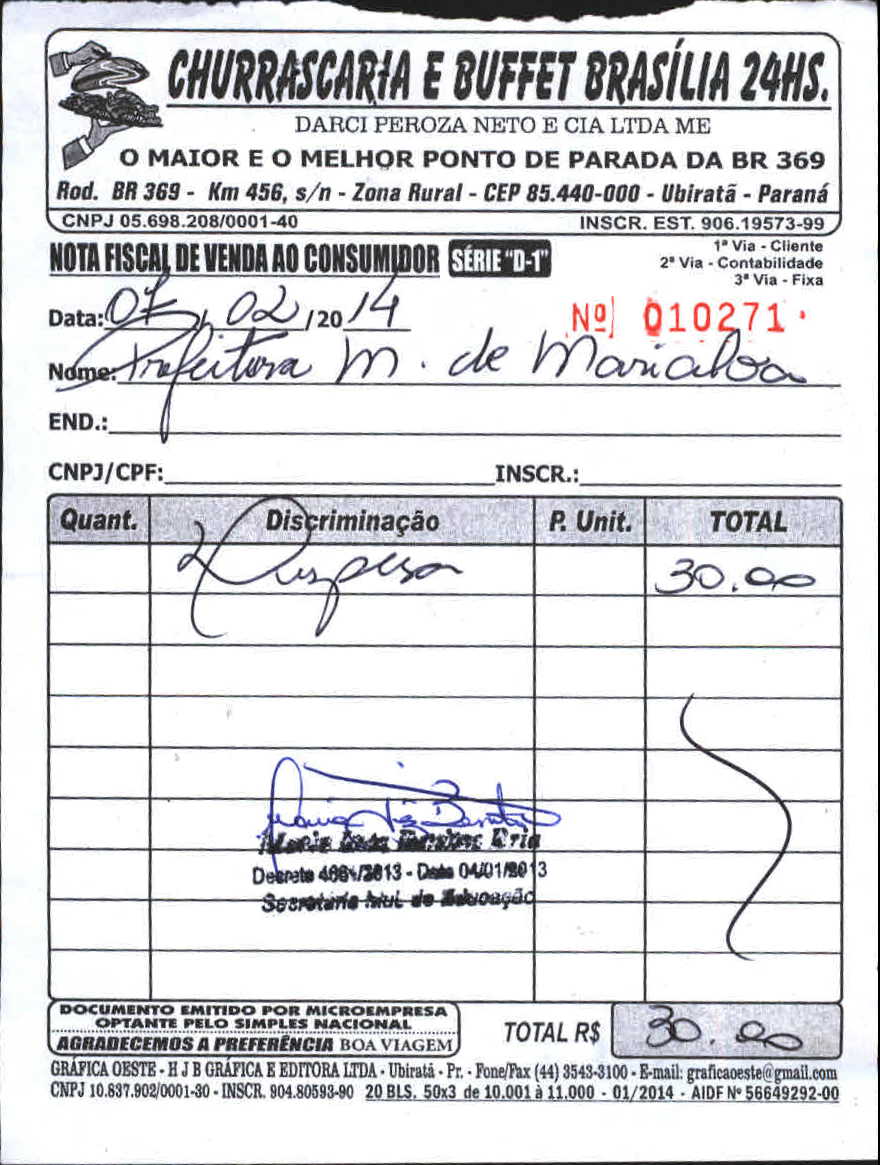 CHURRASCARIA E BUFFET BRASÍLIA 24HS.
DARCI PEROZA NETO E CIA LTDA ME
O MAIOR E O MELHOR PONTO DE PARADA DA BR 369
Rod. BR 369 - Km 456, s/n - Zona Rural - CEP 85.440-000 - Ubiratã - Paraná
CNPJ 05.698.208/0001-40 INSCR. EST. 906.19573-99
NOTA FISCAL DE VENDA AO CONSUMIDOR SÉRIE "D-1"
1ª Via - Cliente
2ª Via - Contabilidade
3ª Via - Fixa
Data: 07/02/2014 Nº 010271
Nome: Prefeitura M. de Marialva
END.:
CNPJ/CPF: INSCR.:
Quant. Discriminação P. Unit. TOTAL
Despesa 30.00
Decreto /2013 - Data 04/01/2013
Secretária Mul. de Educação
DOCUMENTO EMITIDO POR MICROEMPRESA
OPTANTE PELO SIMPLES NACIONAL
AGRADECEMOS A PREFERÊNCIA BOA VIAGEM
TOTAL R$ 30.00
GRÁFICA OESTE - H J B GRÁFICA E EDITORA LTDA - Ubiratã - Pr. - Fone/Fax (44) 3543-3100 - E-mail: graficaoeste@gmail.com
CNPJ 10.837.902/0001-30 - INSCR. 904.80593-90 20 BLS. 50x3 de 10.001 à 11.000 - 01/2014 - AIDF Nº 56649292-00